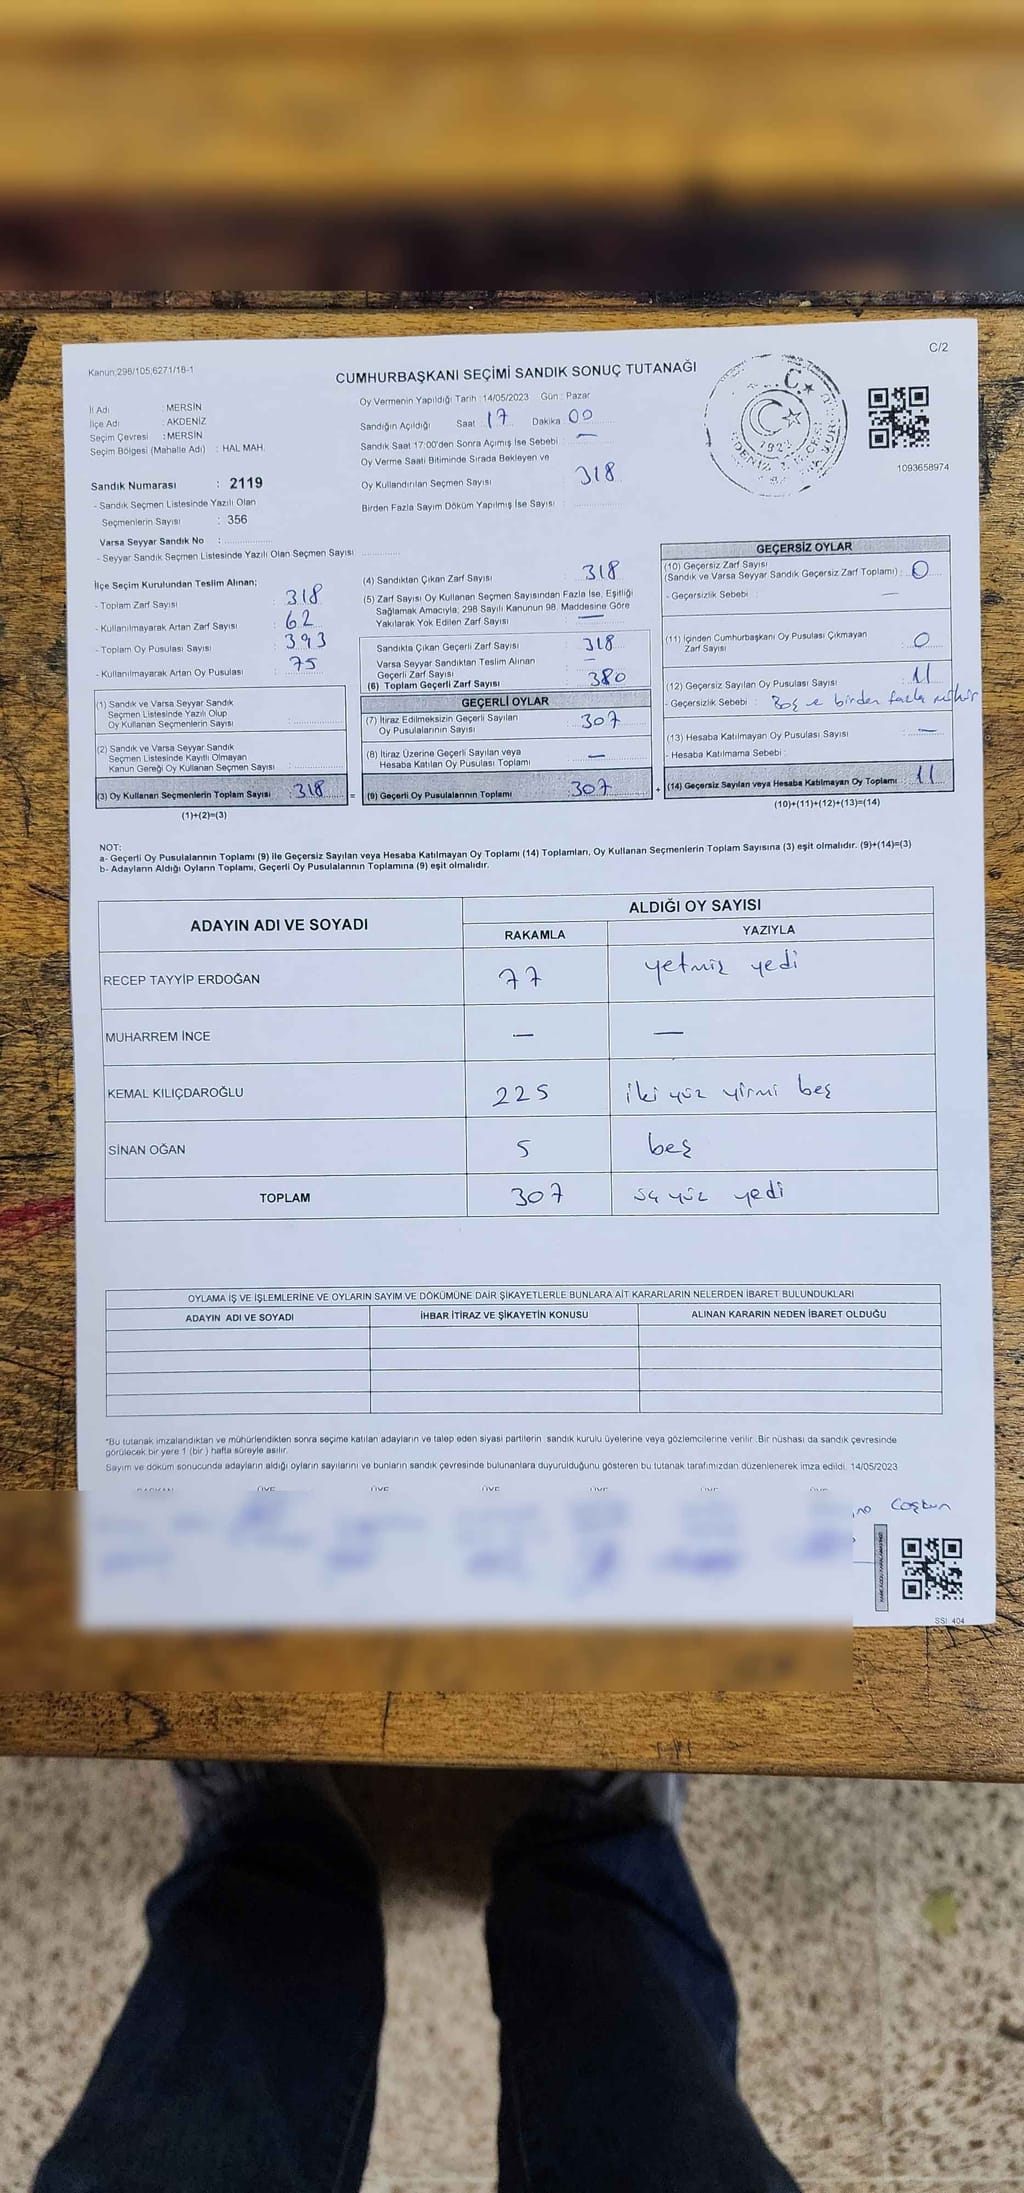 C/2
Kanun;298/105;6271/18-1
CUMHURBAŞKANI SEÇİMİ SANDIK SONUÇ TUTANAĞI
İl Adı : MERSİN
İlçe Adı : AKDENİZ
Seçim Çevresi : MERSİN
Seçim Bölgesi (Mahalle Adı) : HAL MAH.
Sandık Numarası : 2119
- Sandık Seçmen Listesinde Yazılı Olan
Seçmenlerin Sayısı : 356
Varsa Seyyar Sandık No :
- Seyyar Sandık Seçmen Listesinde Yazılı Olan Seçmen Sayısı
Oy Vermenin Yapıldığı Tarih :14/05/2023 Gün : Pazar
Sandığın Açıldığı Saat : 17 Dakika : 00
Sandık Saat 17:00'den Sonra Açımış İse Sebebi : —
Oy Verme Saati Bitiminde Sırada Bekleyen ve
Oy Kullandırılan Seçmen Sayısı : 318
Birden Fazla Sayım Döküm Yapılmış İse Sayısı :
1093658974
İlçe Seçim Kurulundan Teslim Alınan;
- Toplam Zarf Sayısı : 318
- Kullanılmayarak Artan Zarf Sayısı : 62
- Toplam Oy Pusulası Sayısı : 393
- Kullanılmayarak Artan Oy Pusulası : 75
(1) Sandık ve Varsa Seyyar Sandık
Seçmen Listesinde Yazılı Olup
Oy Kullanan Seçmenlerin Sayısı :
(2) Sandık ve Varsa Seyyar Sandık
Seçmen Listesinde Kayıtlı Olmayan
Kanun Gereği Oy Kullanan Seçmen Sayısı :
(3) Oy Kullanan Seçmenlerin Toplam Sayısı : 318 =
(1)+(2)=(3)
(4) Sandıktan Çıkan Zarf Sayısı : 318
(5) Zarf Sayısı Oy Kullanan Seçmen Sayısından Fazla İse, Eşitliği
Sağlamak Amacıyla; 298 Sayılı Kanunun 98. Maddesine Göre
Yakılarak Yok Edilen Zarf Sayısı : —
Sandıkta Çıkan Geçerli Zarf Sayısı : 318
Varsa Seyyar Sandıktan Teslim Alınan
Geçerli Zarf Sayısı : —
(6) Toplam Geçerli Zarf Sayısı : 380
GEÇERLİ OYLAR
(7) İtiraz Edilmeksizin Geçerli Sayılan
Oy Pusulalarının Sayısı : 307
(8) İtiraz Üzerine Geçerli Sayılan veya
Hesaba Katılan Oy Pusulası Toplamı : —
(9) Geçerli Oy Pusulalarının Toplamı : 307 +
GEÇERSİZ OYLAR
(10) Geçersiz Zarf Sayısı
(Sandık ve Varsa Seyyar Sandık Geçersiz Zarf Toplamı) : 0
- Geçersizlik Sebebi : —
(11) İçinden Cumhurbaşkanı Oy Pusulası Çıkmayan
Zarf Sayısı : 0
(12) Geçersiz Sayılan Oy Pusulası Sayısı : 11
- Geçersizlik Sebebi : Boş ve birden fazla mühür
(13) Hesaba Katılmayan Oy Pusulası Sayısı : —
- Hesaba Katılmama Sebebi :
(14) Geçersiz Sayılan veya Hesaba Katılmayan Oy Toplamı : 11
(10)+(11)+(12)+(13)=(14)
NOT:
a- Geçerli Oy Pusulalarının Toplamı (9) ile Geçersiz Sayılan veya Hesaba Katılmayan Oy Toplamı (14) Toplamları, Oy Kullanan Seçmenlerin Toplam Sayısına (3) eşit olmalıdır. (9)+(14)=(3)
b- Adayların Aldığı Oyların Toplamı, Geçerli Oy Pusulalarının Toplamına (9) eşit olmalıdır.
ADAYIN ADI VE SOYADI ALDIĞI OY SAYISI
RAKAMLA YAZIYLA
RECEP TAYYİP ERDOĞAN 77 yetmiş yedi
MUHARREM İNCE — —
KEMAL KILIÇDAROĞLU 225 iki yüz yirmi beş
SİNAN OĞAN 5 beş
TOPLAM 307 üç yüz yedi
OYLAMA İŞ VE İŞLEMLERİNE VE OYLARIN SAYIM VE DÖKÜMÜNE DAİR ŞİKAYETLERLE BUNLARA AİT KARARLARIN NELERDEN İBARET BULUNDUKLARI
ADAYIN ADI VE SOYADI İHBAR İTİRAZ VE ŞİKAYETİN KONUSU ALINAN KARARIN NEDEN İBARET OLDUĞU
*Bu tutanak imzalandıktan ve mühürlendikten sonra seçime katılan adayların ve talep eden siyasi partilerin sandık kurulu üyelerine veya gözlemcilerine verilir. Bir nüshası da sandık çevresinde
görülecek bir yere 1 (bir ) hafta süreyle asılır.
Sayım ve döküm sonucunda adayların aldığı oyların sayılarını ve bunların sandık çevresinde bulunanlara duyurulduğunu gösteren bu tutanak tarafımızdan düzenlenerek imza edildi. 14/05/2023
Coşkun
SSI 404